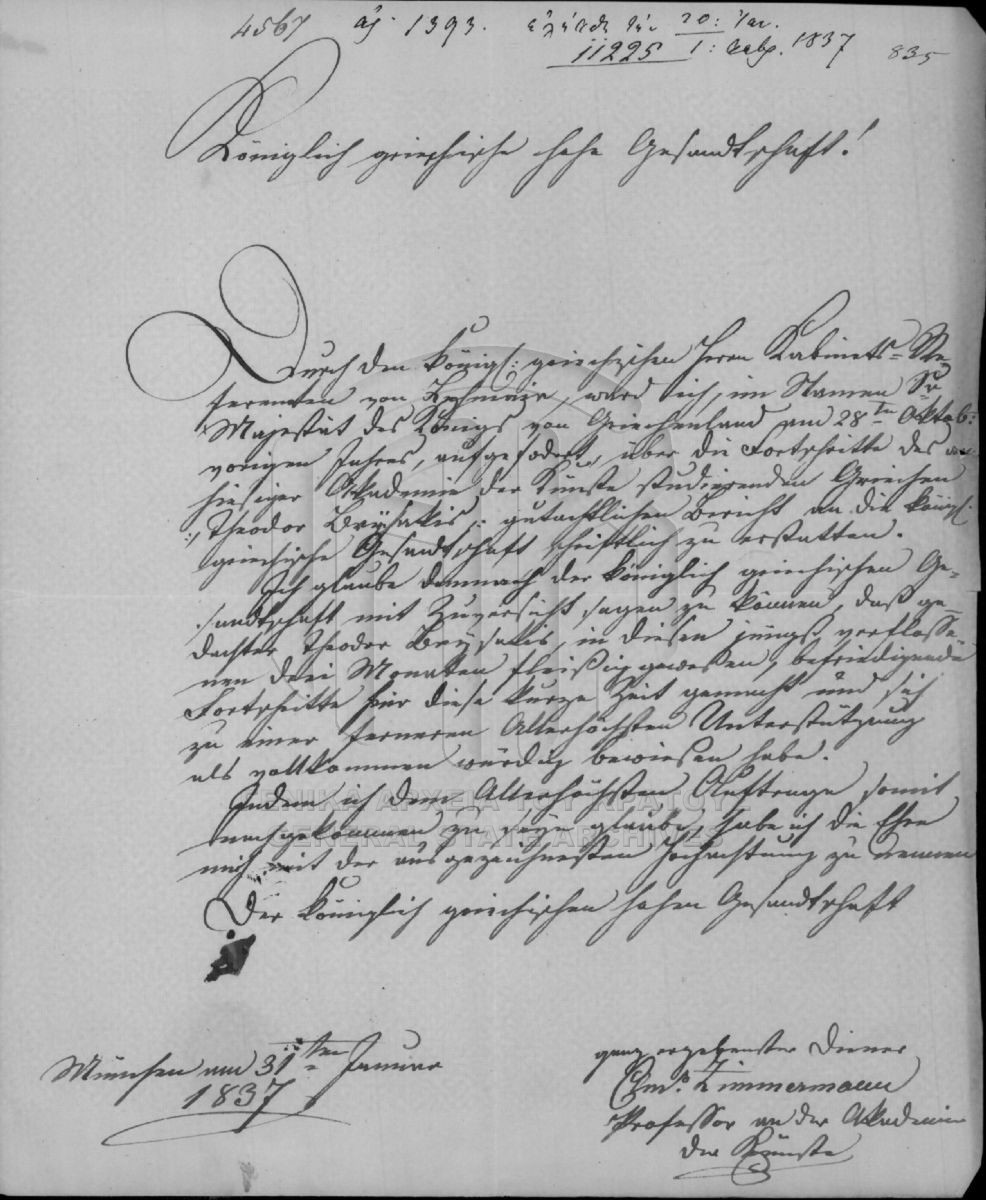 4567 ἀρ. 1393. ἐλήφθη τὴν 20: Ἰαν.
11225 1: Φεβρ. 1837 835
Königlich griechische hohe Gesandtschaft!
Durch den königl: griechischen Herrn Kabinets-Re-
ferenten von, ward ich, im Namen Sr
Majestät des Königs von Griechenland am 28ten Oktob:
vorigen Jahres, aufgefodert, über die Fortschritte des
hiesiger Akademie der Künste studierenden Griechen
Theodor Brysakis, gutachtlichen Bericht an die königl:
griechische Gesandtschaft schriftlich zu erstatten.
Ich glaube demnach der königlich griechischen Ge-
sandtschaft mit Zuversicht sagen zu können, daß ge-
dachter Theodor Brysakis, in diesen jüngst verflosse-
nen drei Monaten fleißig gewesen, befriedigende
Fortschritte für diese kurze Zeit gemacht und sich
zu einer ferneren Allerhöchsten Unterstützung
als vollkommen würdig bewiesen habe.
Indem ich dem Allerhöchsten Auftrage somit
nachgekommen zu seyn glaube, habe ich die Ehre
mich mit der ausgezeichnesten Hochachtung zu nennen
Der königlich griechischen hohen Gesandtschaft
ΓΕΝΙΚΑ ΑΡΧΕΙΑ ΤΟΥ ΚΡΑΤΟΥΣ
GENERAL STATE ARCHIVES
München am 31ten Januar
1837
ganz ergebenster Diener
Clms. Zimmermann
Professor an der Akademie
der Künste